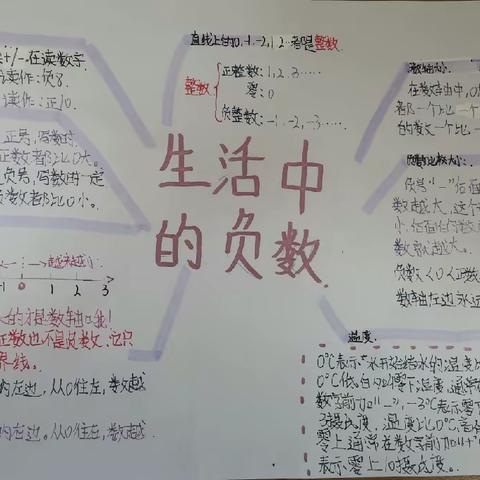 +/-在读数字
读作:负8.
读作:正10.
正号,写数时
正数都比0大。
负号,写数时一定
负数都比0小。
越来越小
-1 0 1 2 3
的才是数轴哦!
正数也不是负数,它只
界线。
的左边,从0往左,数越
的左边。从0往左,数越
直线上的0,-1,-2,1,2…都是整数.
整数
正整数:1,2,3……
零:0
负整数:-1,-2,-3……
生活中
的负数
在数轴中,0
都一个比一个
的数一个比一
负数比较大小:
负号“-”后面
数越大,这个
小,
数就越大。
负数<0<正数
数轴左边永远
温度:
0℃表示水开始结冰的温度比
0℃低的叫零下温度,通常在
数字前加“-”,-3℃表示零下
3摄氏度,温度比0℃高的
零上通常在数字前加“+”
表示零上10摄氏度。